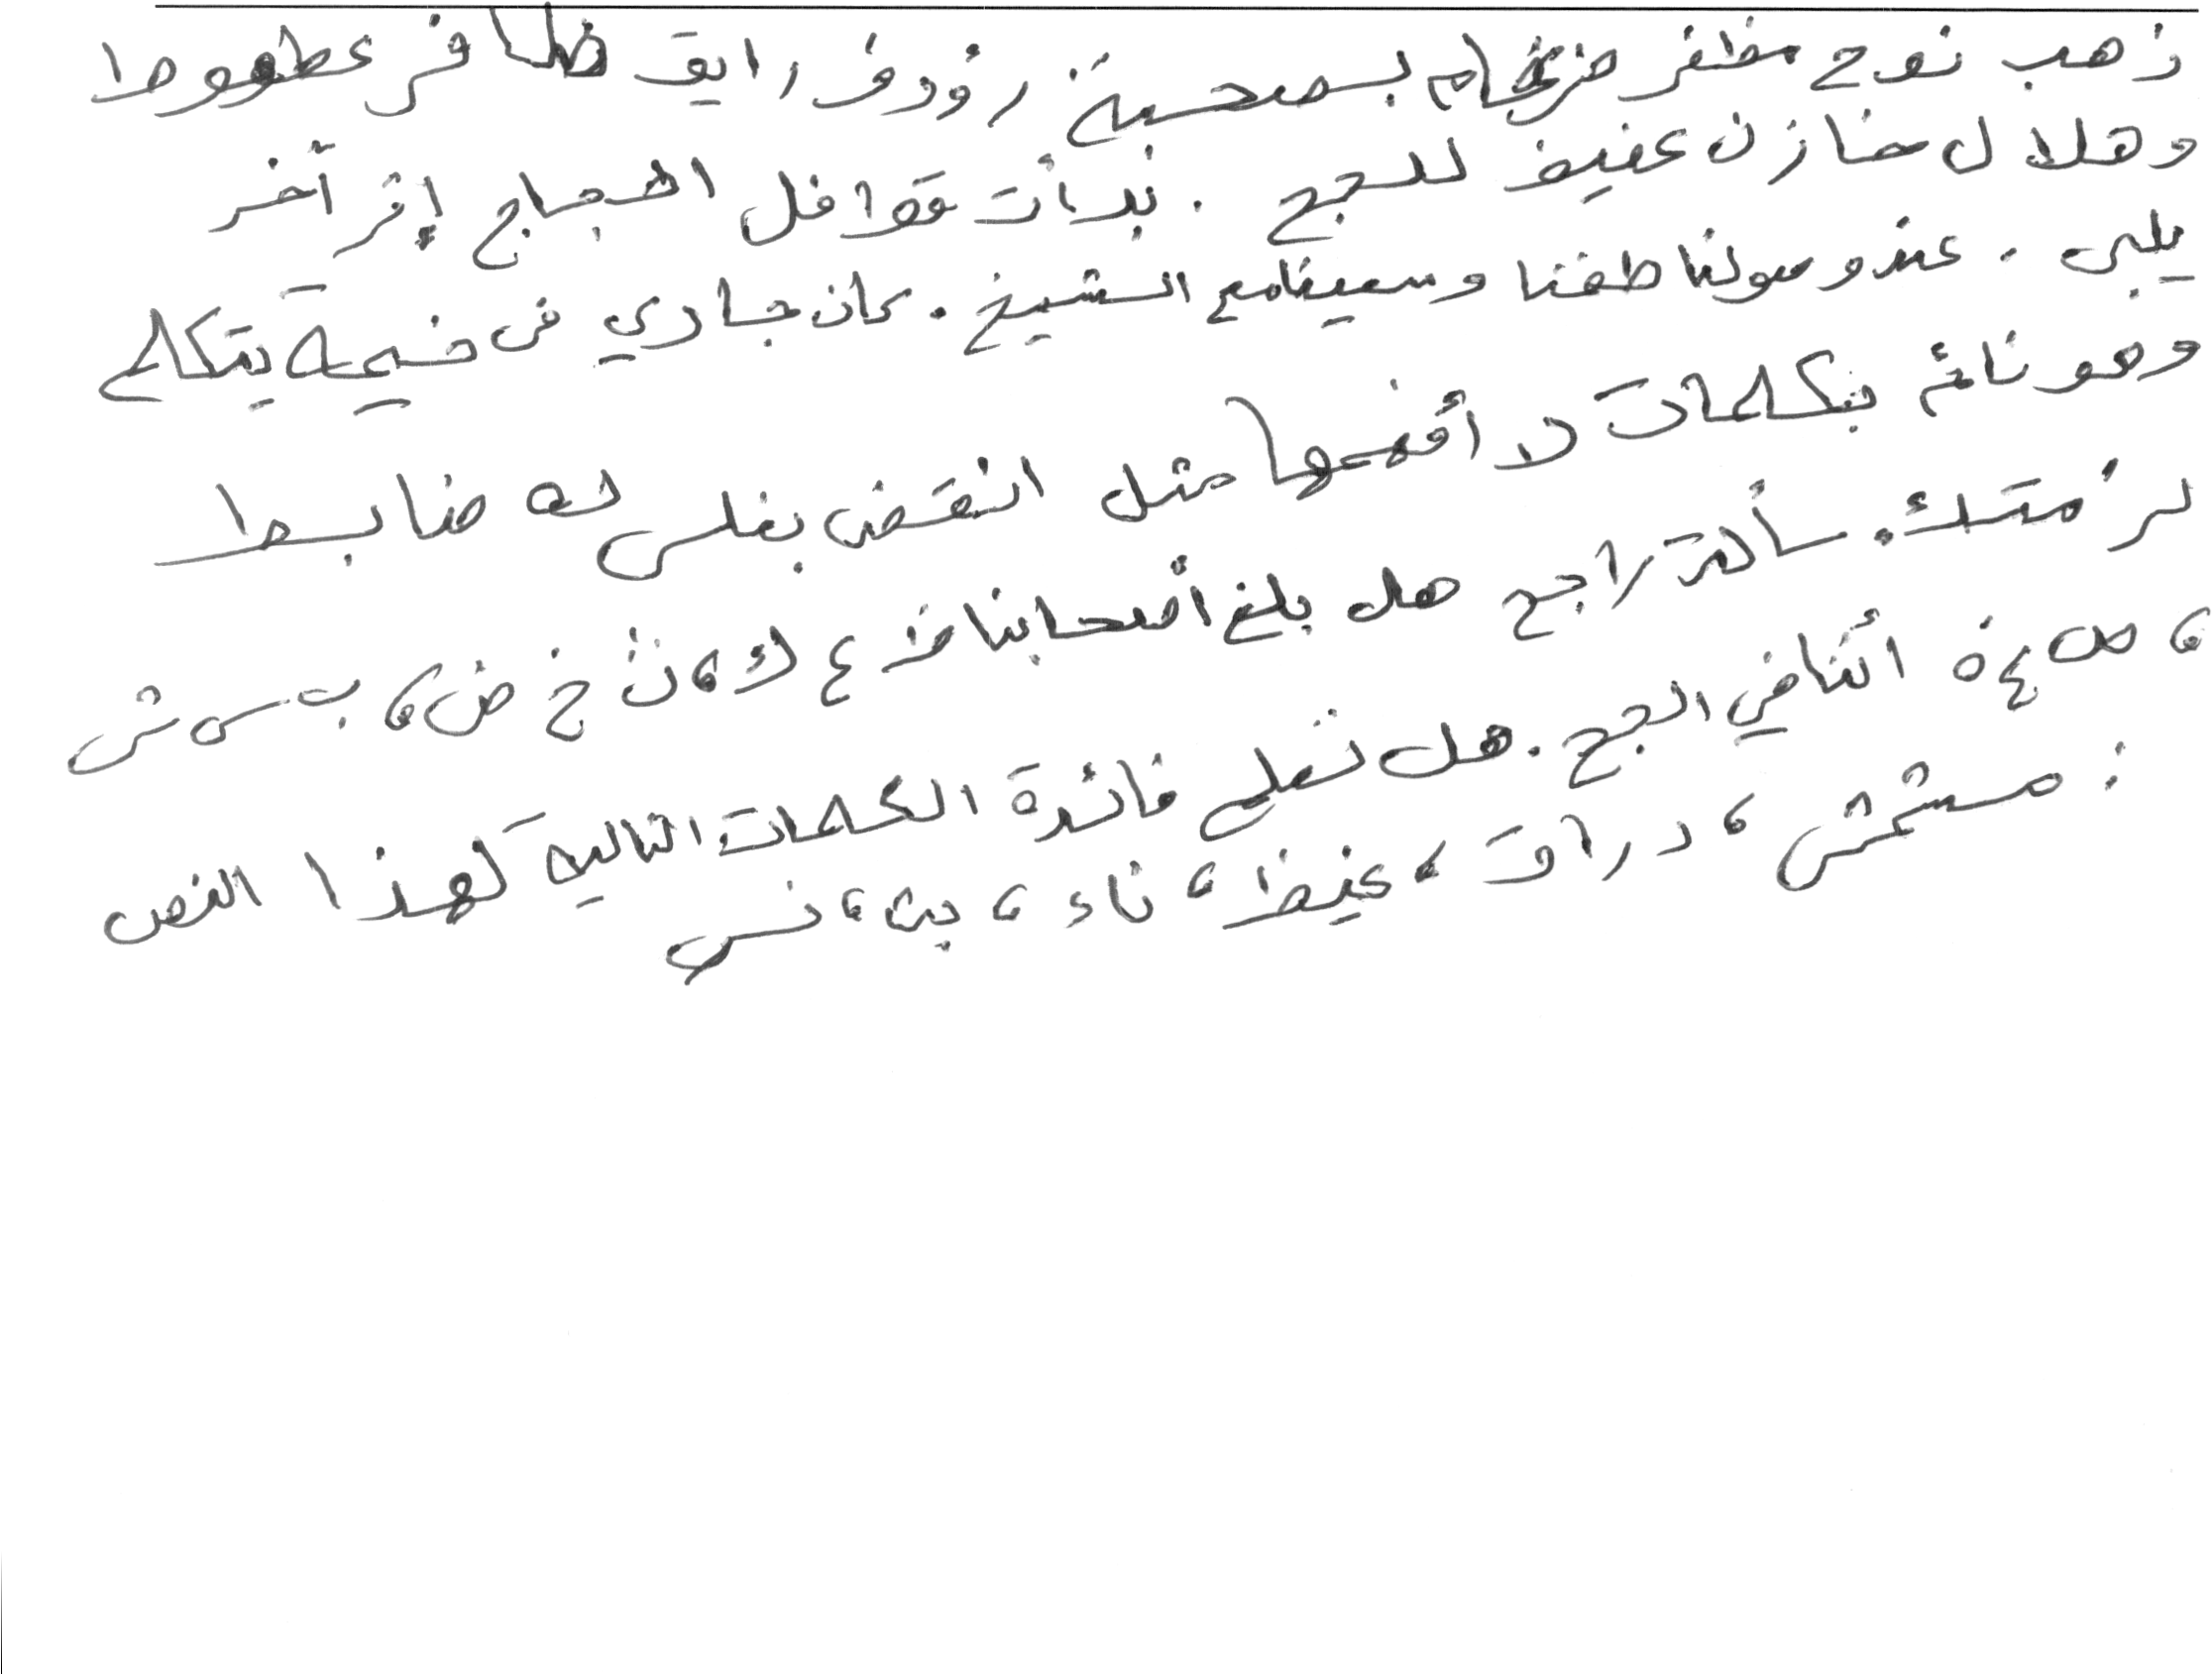 ذهب نوح مظفر ضرغام بصحبة رؤوف رايق ظافر عطووطا
وهلال خازن عفيف للحج . بدأت قوافل الحجاج إثر آخر
يلبى . عند وصولنا طفنا وسعينا مع الشيخ . كان جاري في خيمة يتكلم
وهو نائم بكلمات لا أفهمها مثل انقض بغلس له ضابط
لزمتك . سألت راجح هل بلغ أصحابنا ق ع ك ، ن خ ض ، ب س ش
، ص غ ة اثنا في الحج . هل تعلم فائدة الكلمات التالية لهذا النص
: مستمش ، دراق ، غيظ ، ناء ، يث ، نس